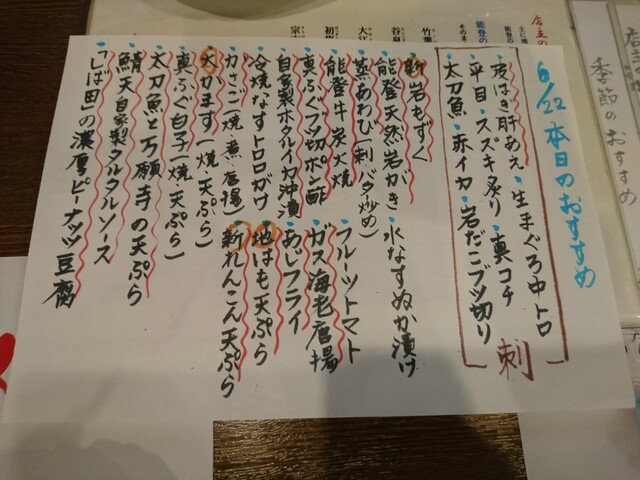 6/22 本日のおすすめ
・皮はぎ肝あえ ・生まぐろ中トロ
・平目・スズキ炙り・真コチ
・太刀魚・赤イカ・岩だこブツ切り
刺
・新岩もずく
・能登天然岩がき
・水なすぬか漬け
・蒸あわび(刺・バタ炒め)
・能登牛炭火焼
・フルーツトマト
・真ふぐブツ切ポン酢
・ガス海老唐揚
・自家製ホタルイカ沖漬
・あじフライ
・冷焼なすトロロがけ
・地はも天ぷら
・カさご(焼・煮・唐揚)
・新れんこん天ぷら
・大かます(焼・天ぷら)
・真ふぐ白子(焼・天ぷら)
・太刀魚と万願寺の天ぷら
・鯖天自家製タルタルソース
・「しば田」の濃厚ピーナッツ豆腐
店主の
能登の
竹葉
谷泉
大江
初桜
宗玄
季節のおすすめ